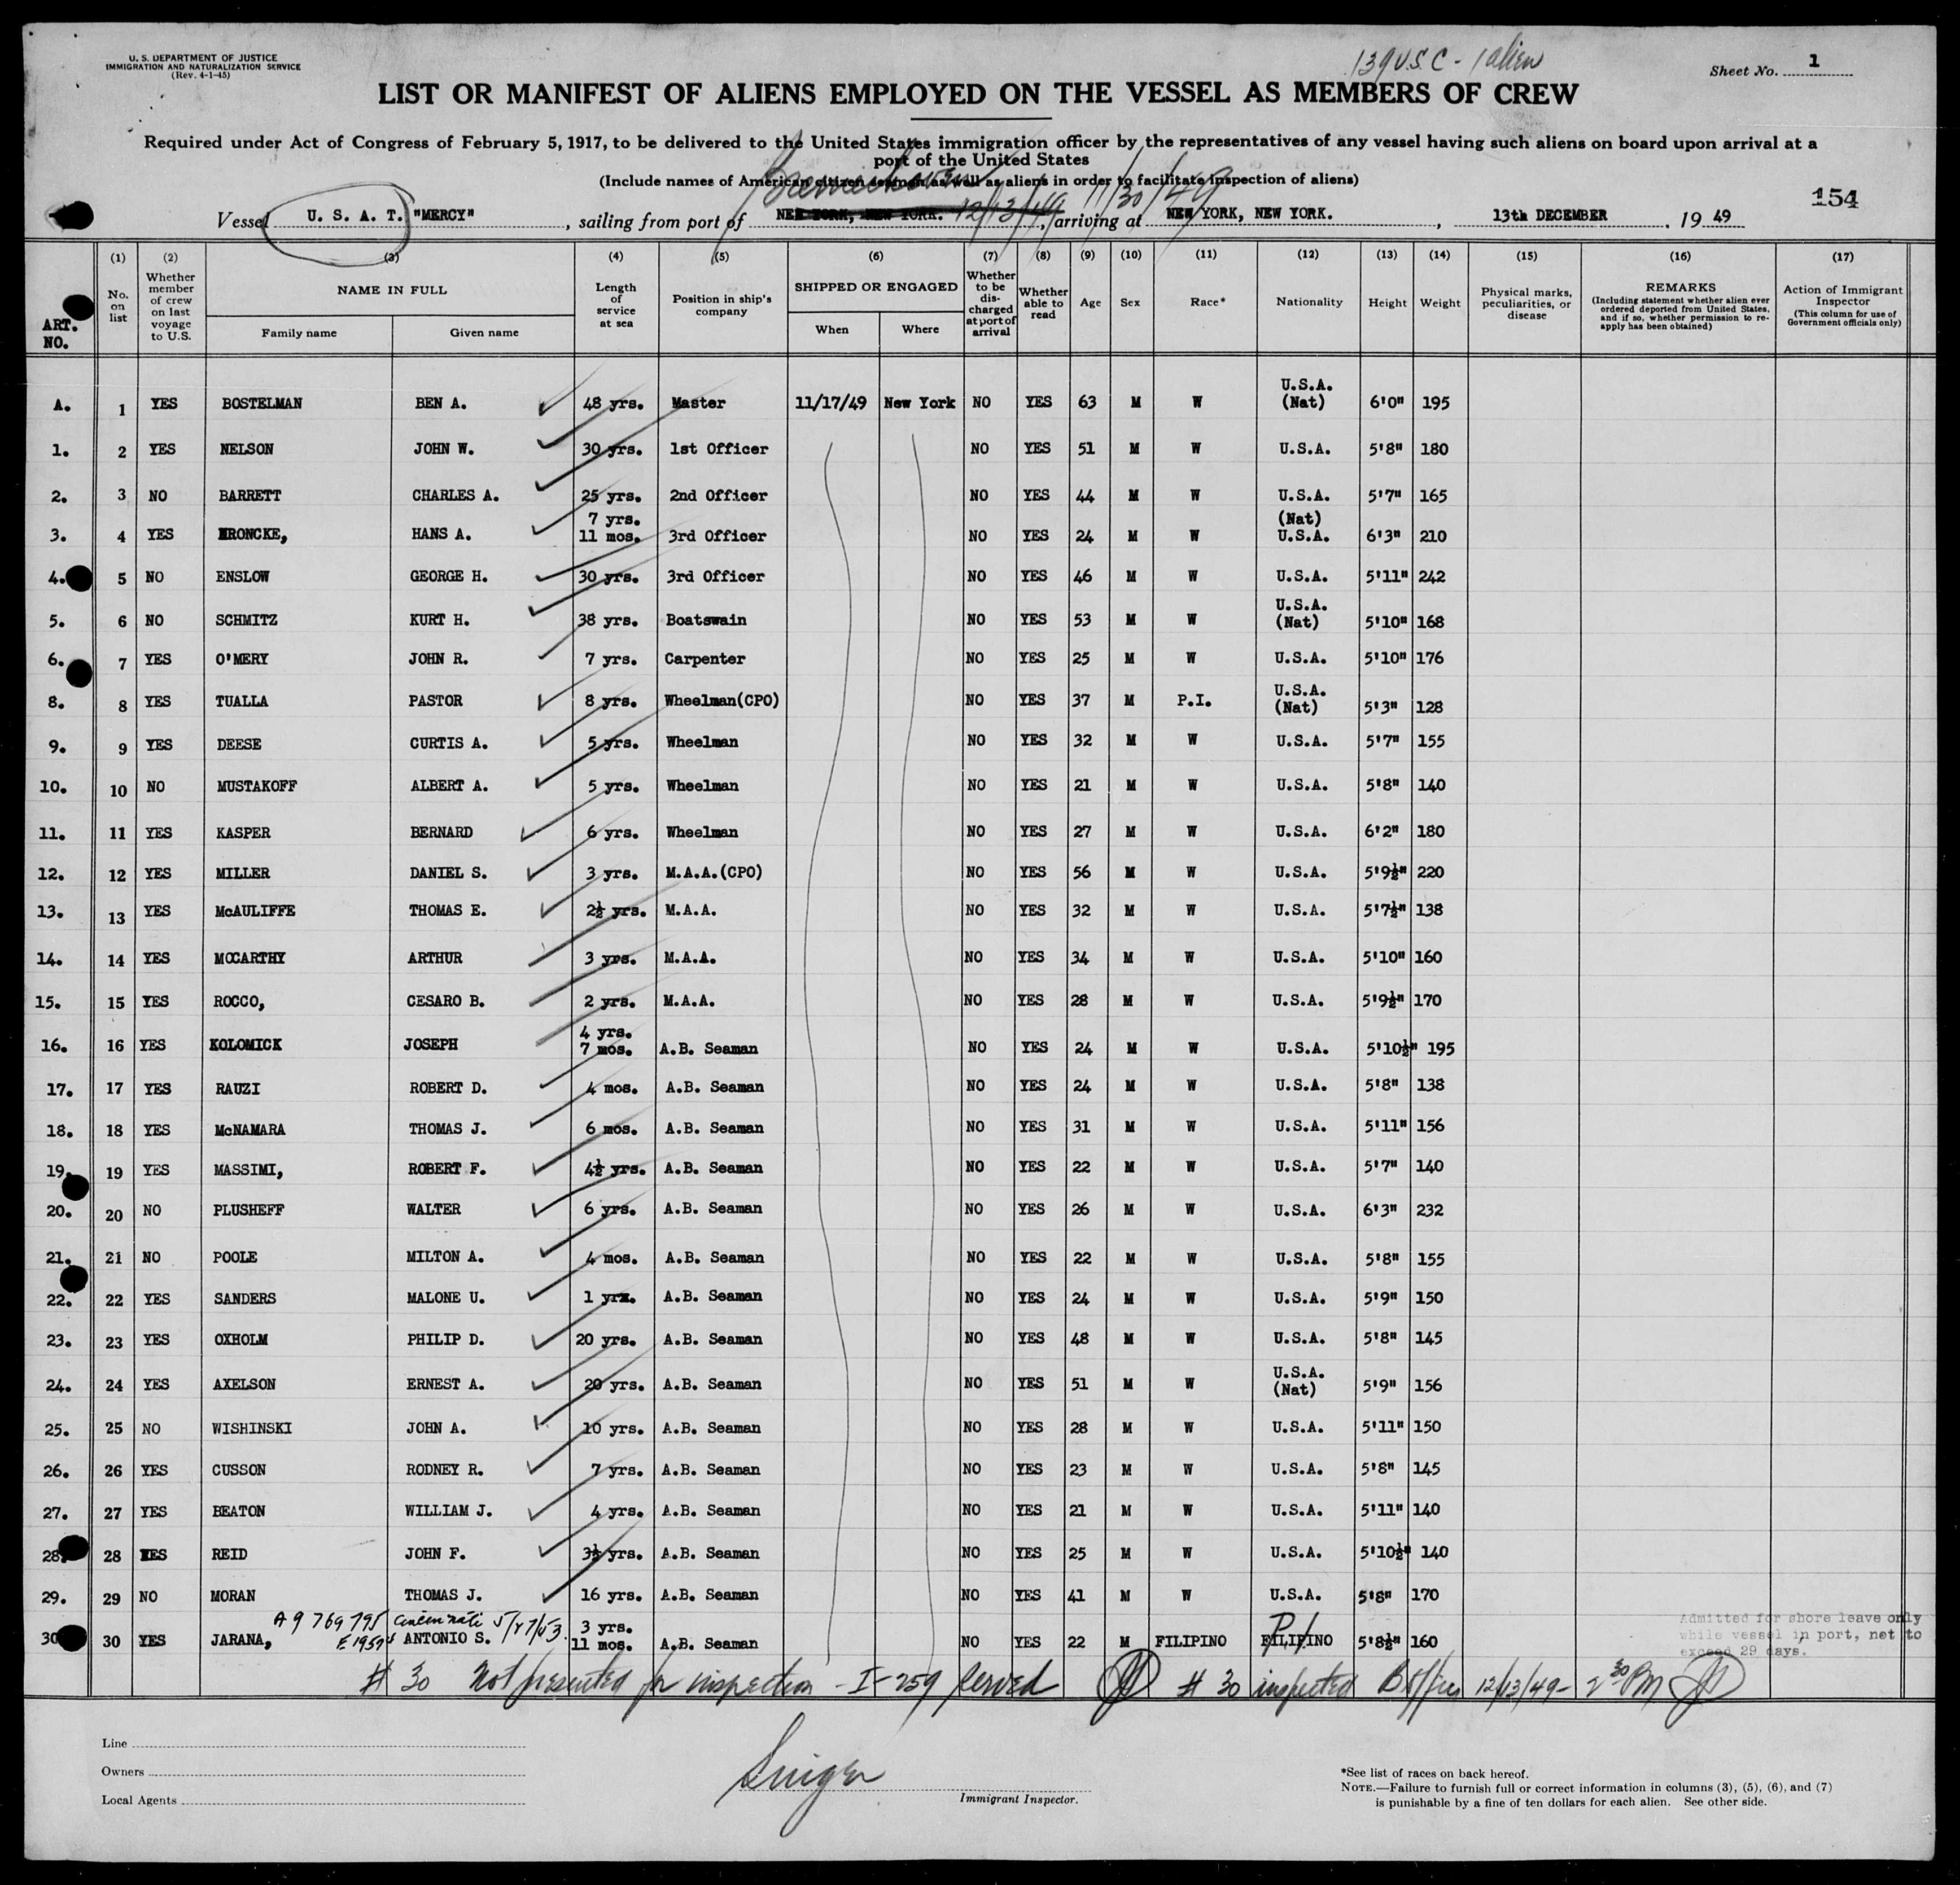 U. S. DEPARTMENT OF JUSTICE
IMMIGRATION AND NATURALIZATION SERVICE
(Rev. 4-1-45)
139 U.S.C - 1 alien
Sheet No. 1
LIST OR MANIFEST OF ALIENS EMPLOYED ON THE VESSEL AS MEMBERS OF CREW
Required under Act of Congress of February 5, 1917, to be delivered to the United States immigration officer by the representatives of any vessel having such aliens on board upon arrival at a
port of the United States
(Include names of American citizen seamen as well as aliens in order to facilitate inspection of aliens)
154
Bremerhaven 12/13/49 11/30/49
Vessel U. S. A. T. "MERCY", sailing from port of NEW YORK, NEW YORK., arriving at NEW YORK, NEW YORK., 13th DECEMBER, 19 49
ART. NO. (1) No. on list (2) Whether member of crew on last voyage to U.S. (3) NAME IN FULL Family name Given name (4) Length of service at sea (5) Position in ship's company (6) SHIPPED OR ENGAGED When Where (7) Whether to be discharged at port of arrival (8) Whether able to read (9) Age (10) Sex (11) Race* (12) Nationality (13) Height (14) Weight (15) Physical marks, peculiarities, or disease (16) REMARKS (Including statement whether alien ever ordered deported from United States, and if so, whether permission to re-apply has been obtained) (17) Action of Immigrant Inspector (This column for use of Government officials only)
A. 1 YES BOSTELMAN BEN A. 48 yrs. Master 11/17/49 New York NO YES 63 M W U.S.A. (Nat) 6'0" 195
1. 2 YES NELSON JOHN W. 30 yrs. 1st Officer NO YES 51 M W U.S.A. 5'8" 180
2. 3 NO BARRETT CHARLES A. 25 yrs. 2nd Officer NO YES 44 M W U.S.A. 5'7" 165
3. 4 YES HRONCKE, HANS A. 7 yrs. 11 mos. 3rd Officer NO YES 24 M W (Nat) U.S.A. 6'3" 210
4. 5 NO ENSLOW GEORGE H. 30 yrs. 3rd Officer NO YES 46 M W U.S.A. 5'11" 242
5. 6 NO SCHMITZ KURT H. 38 yrs. Boatswain NO YES 53 M W U.S.A. (Nat) 5'10" 168
6. 7 YES O'MERY JOHN R. 7 yrs. Carpenter NO YES 25 M W U.S.A. 5'10" 176
8. 8 YES TUALLA PASTOR 8 yrs. Wheelman(CPO) NO YES 37 M P.I. U.S.A. (Nat) 5'3" 128
9. 9 YES DEESE CURTIS A. 5 yrs. Wheelman NO YES 32 M W U.S.A. 5'7" 155
10. 10 NO MUSTAKOFF ALBERT A. 5 yrs. Wheelman NO YES 21 M W U.S.A. 5'8" 140
11. 11 YES KASPER BERNARD 6 yrs. Wheelman NO YES 27 M W U.S.A. 6'2" 180
12. 12 YES MILLER DANIEL S. 3 yrs. M.A.A.(CPO) NO YES 56 M W U.S.A. 5'9½" 220
13. 13 YES McAULIFFE THOMAS E. 2½ yrs. M.A.A. NO YES 32 M W U.S.A. 5'7½" 138
14. 14 YES MCCARTHY ARTHUR 3 yrs. M.A.A. NO YES 34 M W U.S.A. 5'10" 160
15. 15 YES ROCCO, CESARO B. 2 yrs. M.A.A. NO YES 28 M W U.S.A. 5'9½" 170
16. 16 YES KOLOMICK JOSEPH 4 yrs. 7 mos. A.B. Seaman NO YES 24 M W U.S.A. 5'10½" 195
17. 17 YES RAUZI ROBERT D. 4 mos. A.B. Seaman NO YES 24 M W U.S.A. 5'8" 138
18. 18 YES McNAMARA THOMAS J. 6 mos. A.B. Seaman NO YES 31 M W U.S.A. 5'11" 156
19. 19 YES MASSIMI, ROBERT F. 4½ yrs. A.B. Seaman NO YES 22 M W U.S.A. 5'7" 140
20. 20 NO PLUSHEFF WALTER 6 yrs. A.B. Seaman NO YES 26 M W U.S.A. 6'3" 232
21. 21 NO POOLE MILTON A. 4 mos. A.B. Seaman NO YES 22 M W U.S.A. 5'8" 155
22. 22 YES SANDERS MALONE U. 1 yrx. A.B. Seaman NO YES 24 M W U.S.A. 5'9" 150
23. 23 YES OXHOLM PHILIP D. 20 yrs. A.B. Seaman NO YES 48 M W U.S.A. 5'8" 145
24. 24 YES AXELSON ERNEST A. 20 yrs. A.B. Seaman NO YES 51 M W U.S.A. (Nat) 5'9" 156
25. 25 NO WISHINSKI JOHN A. 10 yrs. A.B. Seaman NO YES 28 M W U.S.A. 5'11" 150
26. 26 YES CUSSON RODNEY R. 7 yrs. A.B. Seaman NO YES 23 M W U.S.A. 5'8" 145
27. 27 YES BEATON WILLIAM J. 4 yrs. A.B. Seaman NO YES 21 M W U.S.A. 5'11" 140
28. 28 YES REID JOHN F. 3½ yrs. A.B. Seaman NO YES 25 M W U.S.A. 5'10½" 140
29. 29 NO MORAN THOMAS J. 16 yrs. A.B. Seaman NO YES 41 M W U.S.A. 5'8" 170
A 9 769 795 Cincinnati 5/27/53 P/I
30 30 YES JARANA, ANTONIO S. 3 yrs. 11 mos. A.B. Seaman NO YES 22 M FILIPINO FILIPINO 5'8½" 160
Admitted for shore leave only
while vessel in port, not to
exceed 29 days.
# 30 Not presented for inspection - I-259 served # 30 inspected B office 12/13/49 - 2 30 PM
Line
Owners
Local Agents
Immigrant Inspector.
*See list of races on back hereof.
NOTE.—Failure to furnish full or correct information in columns (3), (5), (6), and (7)
is punishable by a fine of ten dollars for each alien. See other side.